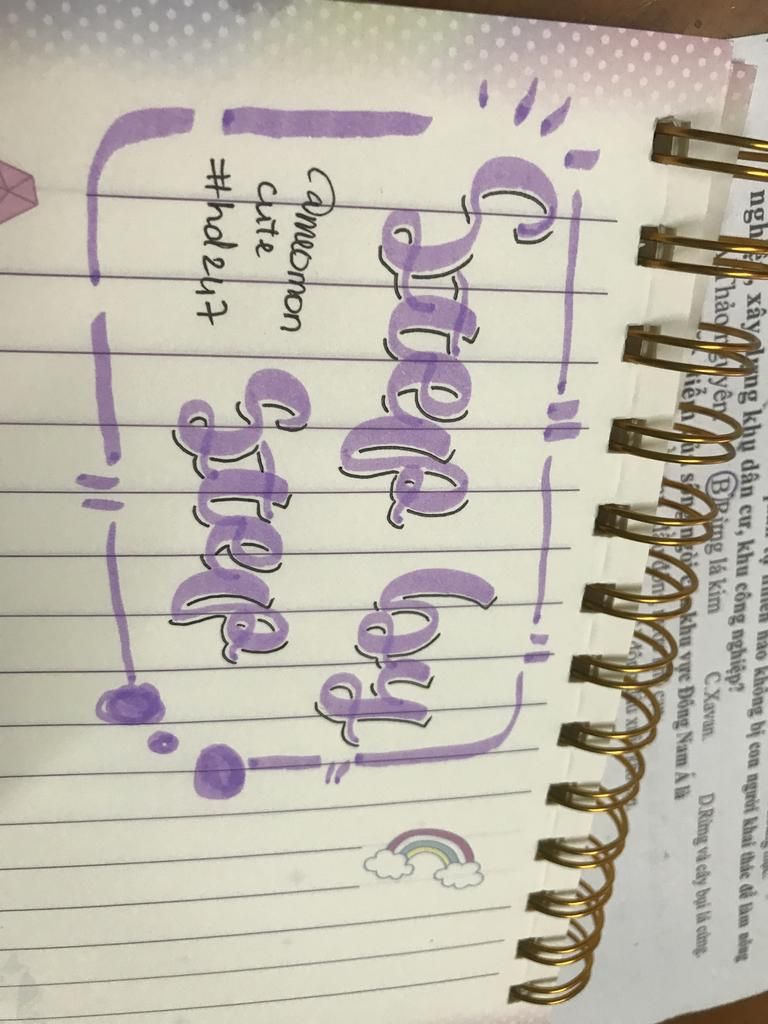 nhiên nào không bị con người khai thác để làm nông
xây dựng khu dân cư, khu công nghiệp?
Thảo nguyên B Rừng lá kim C.Xavan. D.Rừng và cây bụi lá cứng.
khu vực Đông Nam Á là
Step by
Step
@meomon
cute
#hd247